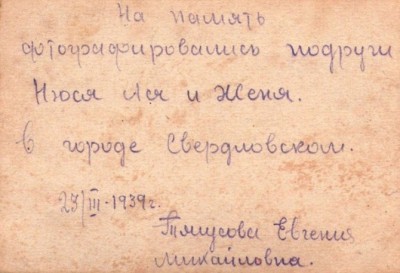 На память
фотографировались подруги
Нюся Ася и Женя.
в городе Свердловском.
27/III-1939г.
Евгения
Михайловна.